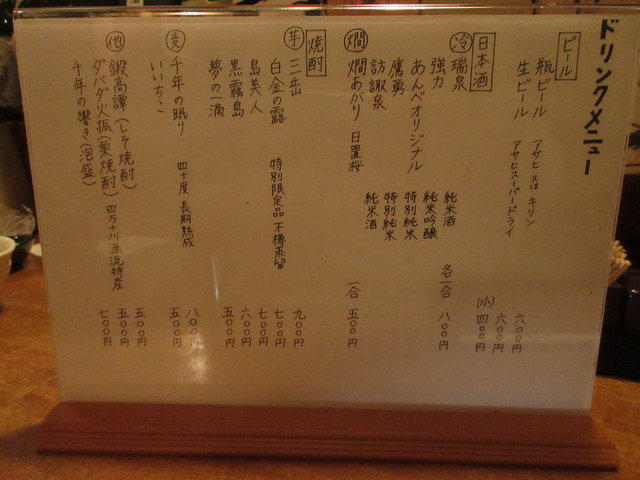 ドリンクメニュー
ビール
瓶ビール アサヒ 又は キリン 六〇〇円
生ビール アサヒスーパードライ 六〇〇円
(小) 四〇〇円
日本酒
冷 瑞泉 純米酒 各一合 八〇〇円
強力 純米吟醸
あんべオリジナル 特別純米
鷹勇 特別純米
諏訪泉 純米酒
燗 燗あがり 日置桜 一合 五〇〇円
焼酎
芋 三岳 九〇〇円
白金の露 特別限定品 木樽蒸留 七〇〇円
島美人 七〇〇円
黒霧島 六〇〇円
夢の一滴 五〇〇円
麦 千年の眠り 四十度 長期熟成 八〇〇円
いいちこ 五〇〇円
他 鍛高譚(しそ焼酎) 五〇〇円
ダバダ火振(栗焼酎) 四万十川源流特産 五〇〇円
千年の響き(泡盛) 七〇〇円